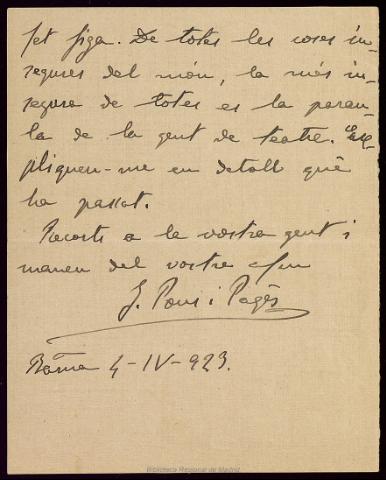 fet figa. De totes les coses in-
segures del món, la més in-
segura de totes es la parau-
la de la gent de teatre. Ex-
pliquen-me en detall què
ha passat.
Records a la vostra gent i
maneu del vostre afm
J. Pous i Pagès
Barna 4-IV-923.
Biblioteca Regional de Madrid